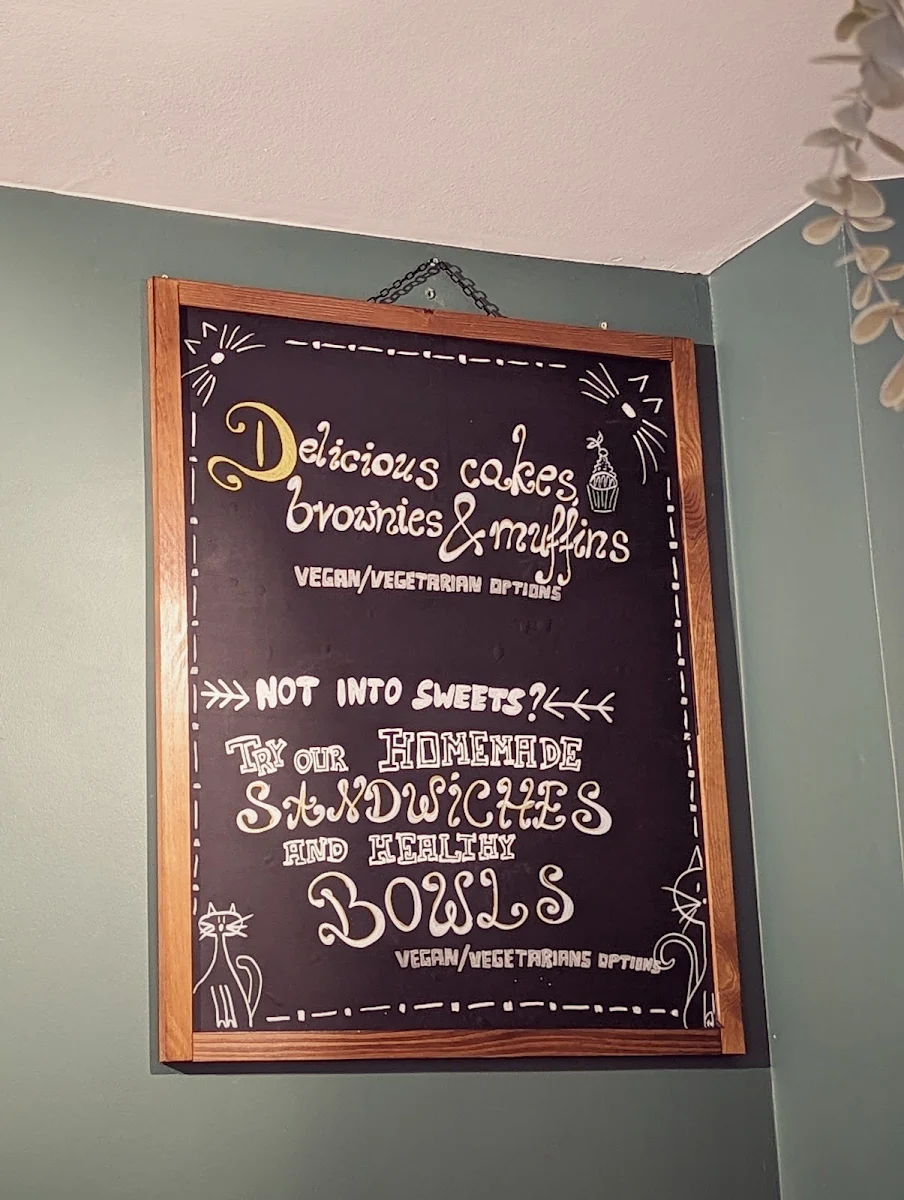 Delicious cakes,
brownies & muffins
VEGAN/VEGETARIAN OPTIONS
NOT INTO SWEETS?
TRY OUR HOMEMADE
SANDWiCHES
AND HEALTHY
BOWLS
VEGAN/VEGETARIANS OPTIONS